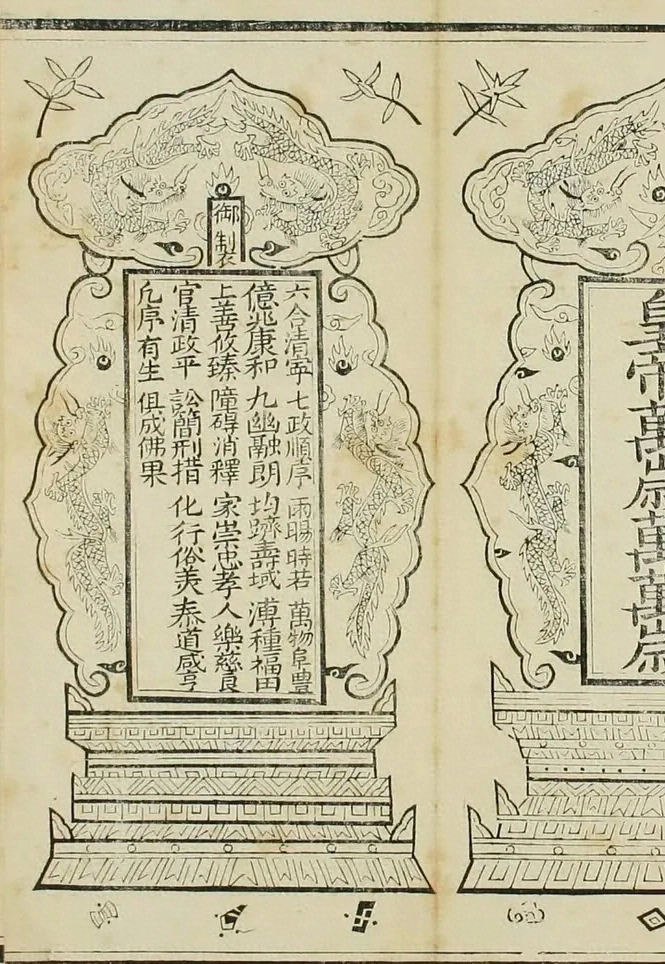 皇帝萬歲萬萬歲
御製
六合清寧 七政順序 雨暘時若 萬物阜豐
億兆康和 九幽融朗 均躋壽域 溥種福田
上善攸臻 障碍消釋 家崇忠孝 人樂慈良
官清政平 訟簡刑措 化行俗美 泰道咸亨
凡序有生 俱成佛果